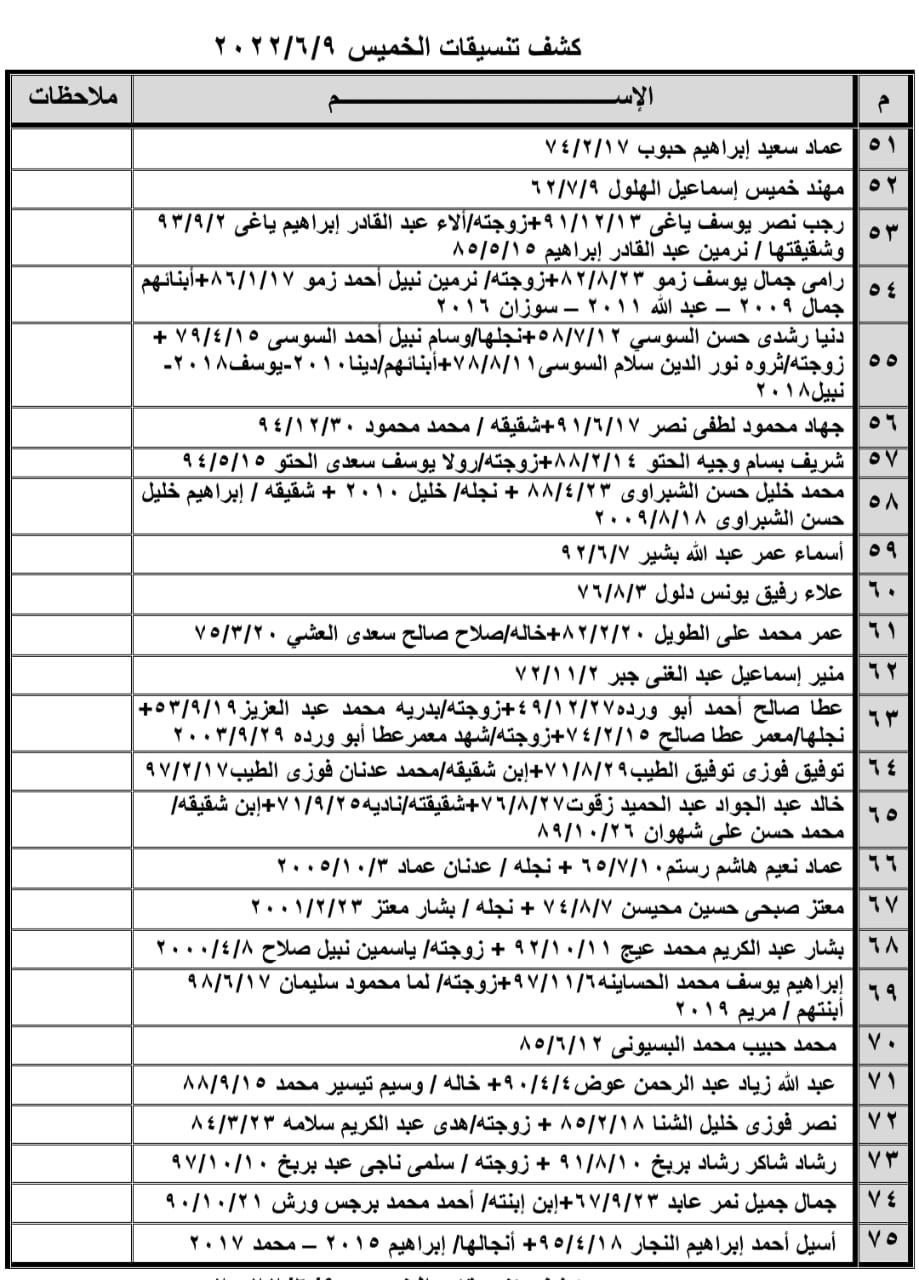 كشف تنسيقات الخميس ٢٠٢٢/٦/٩
م الإســـــــــم ملاحظات
٥١ عماد سعيد إبراهيم حبوب ٧٤/٢/١٧
٥٢ مهند خميس إسماعيل الهلول ٦٢/٧/٩
٥٣ رجب نصر يوسف ياغى ٩١/١٢/١٣+زوجته/ألاء عبد القادر إبراهيم ياغى ٩٣/٩/٢
وشقيقتها / نرمين عبد القادر إبراهيم ٨٥/٥/١٥
٥٤ رامى جمال يوسف زمو ٨٢/٨/٢٣+زوجته/ نرمين نبيل أحمد زمو ٨٦/١/١٧+أبنائهم
جمال ٢٠٠٩ – عبد الله ٢٠١١ – سوزان ٢٠١٦
٥٥ دنيا رشدى حسن السوسي ٥٨/٧/١٢+نجلها/وسام نبيل أحمد السوسى ٧٩/٤/١٥ +
زوجته/ثروه نور الدين سلام السوسى٧٨/٨/١١+أبنائهم/دينا٢٠١٠-يوسف٢٠١٨-
نبيل٢٠١٨
٥٦ جهاد محمود لطفى نصر ٩١/٦/١٧+شقيقه / محمد محمود ٩٤/١٢/٣٠
٥٧ شريف بسام وجيه الحتو ٨٨/٢/١٤+زوجته/رولا يوسف سعدى الحتو ٩٤/٥/١٥
٥٨ محمد خليل حسن الشبراوى ٨٨/٤/٢٣ + نجله/ خليل ٢٠١٠ + شقيقه / إبراهيم خليل
حسن الشبراوى ٢٠٠٩/٨/١٨
٥٩ أسماء عمر عبد الله بشير ٩٢/٦/٧
٦٠ علاء رفيق يونس دلول ٧٦/٨/٣
٦١ عمر محمد على الطويل ٨٢/٢/٢٠+خاله/صلاح صالح سعدى العشي ٧٥/٣/٢٠
٦٢ منير إسماعيل عبد الغنى جبر ٧٢/١١/٢
٦٣ عطا صالح أحمد أبو ورده٤٩/١٢/٢٧+زوجته/بدريه محمد عبد العزيز٥٣/٩/١٩+
نجلها/معمر عطا صالح ٧٤/٢/١٥+زوجته/شهد معمرعطا أبو ورده ٢٠٠٣/٩/٢٩
٦٤ توفيق فوزى توفيق الطيب٧١/٨/٢٩+إبن شقيقه/محمد عدنان فوزى الطيب٩٧/٢/١٧
٦٥ خالد عبد الجواد عبد الحميد زقوت٧٦/٨/٢٧+شقيقته/ناديه٧١/٩/٢٥+إبن شقيقه/
محمد حسن على شهوان ٨٩/١٠/٢٦
٦٦ عماد نعيم هاشم رستم٦٥/٧/١٠ + نجله / عدنان عماد ٢٠٠٥/١٠/٣
٦٧ معتز صبحى حسين محيسن ٧٤/٨/٧ + نجله / بشار معتز ٢٠٠١/٢/٢٣
٦٨ بشار عبد الكريم محمد عيج ٩٢/١٠/١١ + زوجته/ ياسمين نبيل صلاح ٢٠٠٠/٤/٨
٦٩ إبراهيم يوسف محمد الحساينه٩٧/١١/٦+زوجته/ لما محمود سليمان ٩٨/٦/١٧
أبنتهم / مريم ٢٠١٩
٧٠ محمد حبيب محمد البسيونى ٨٥/٦/١٢
٧١ عبد الله زياد عبد الرحمن عوض٩٠/٤/٤+ خاله / وسيم تيسير محمد ٨٨/٩/١٥
٧٢ نصر فوزى خليل الشنا ٨٥/٢/١٨ + زوجته/هدى عبد الكريم سلامه ٨٤/٣/٢٣
٧٣ رشاد شاكر رشاد بربخ ٩١/٨/١٠ + زوجته / سلمى ناجى عبد بربخ ٩٧/١٠/١٠
٧٤ جمال جميل نمر عابد ٦٧/٩/٢٣+إبن إبنته/ أحمد محمد برجس ورش ٩٠/١٠/٢١
٧٥ أسيل أحمد إبراهيم النجار ٩٥/٤/١٨+ أنجالها/ إبراهيم ٢٠١٥ – محمد ٢٠١٧